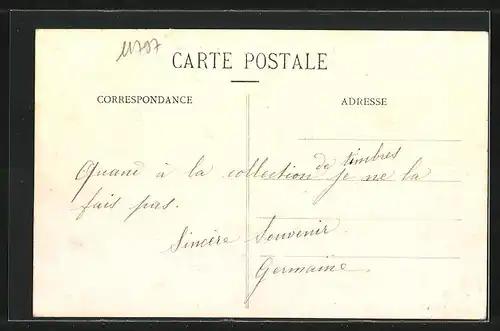 11797
CARTE POSTALE
CORRESPONDANCE
ADRESSE
de timbres
Quand à la collection je ne la
fais pas.
Sincère Souvenir.
Germaine.